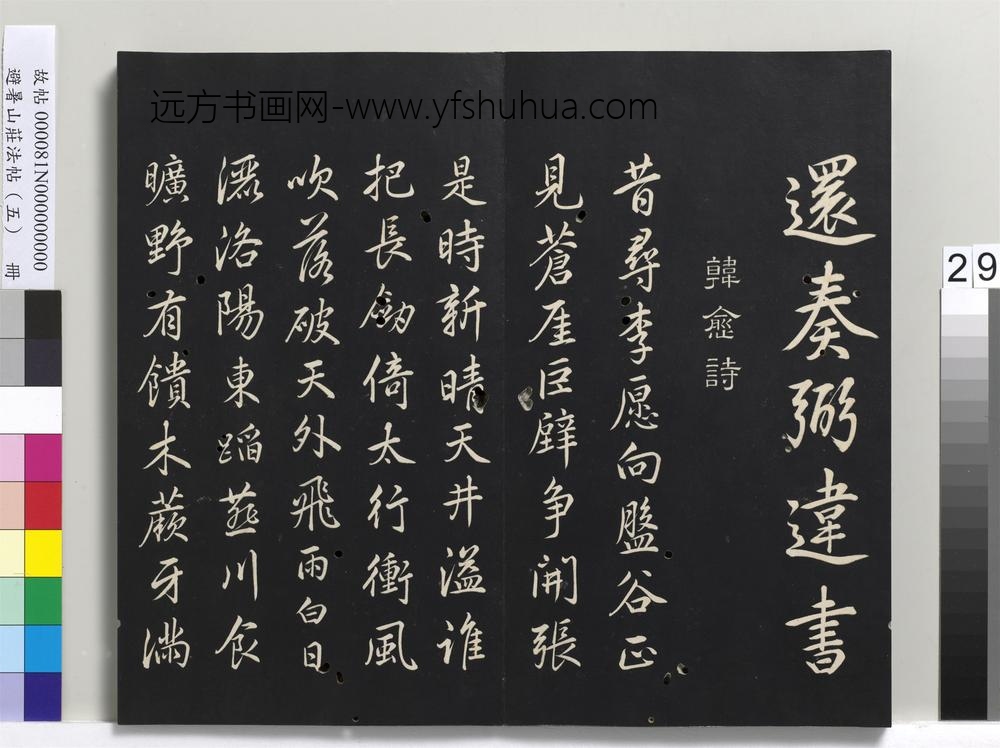 還奏弼違書
韓愈詩
昔尋李愿向盤谷正
見蒼厓巨壁争開張
是時新晴天井溢誰
把長劒倚太行衝風
吹落破天外飛雨白日
灑洛陽東蹈燕川食
曠野有饋木蕨牙滿
远方书画网-www.yfshuhua.com
故帖 000081N000000000
避暑山莊法帖（五） 冊
29